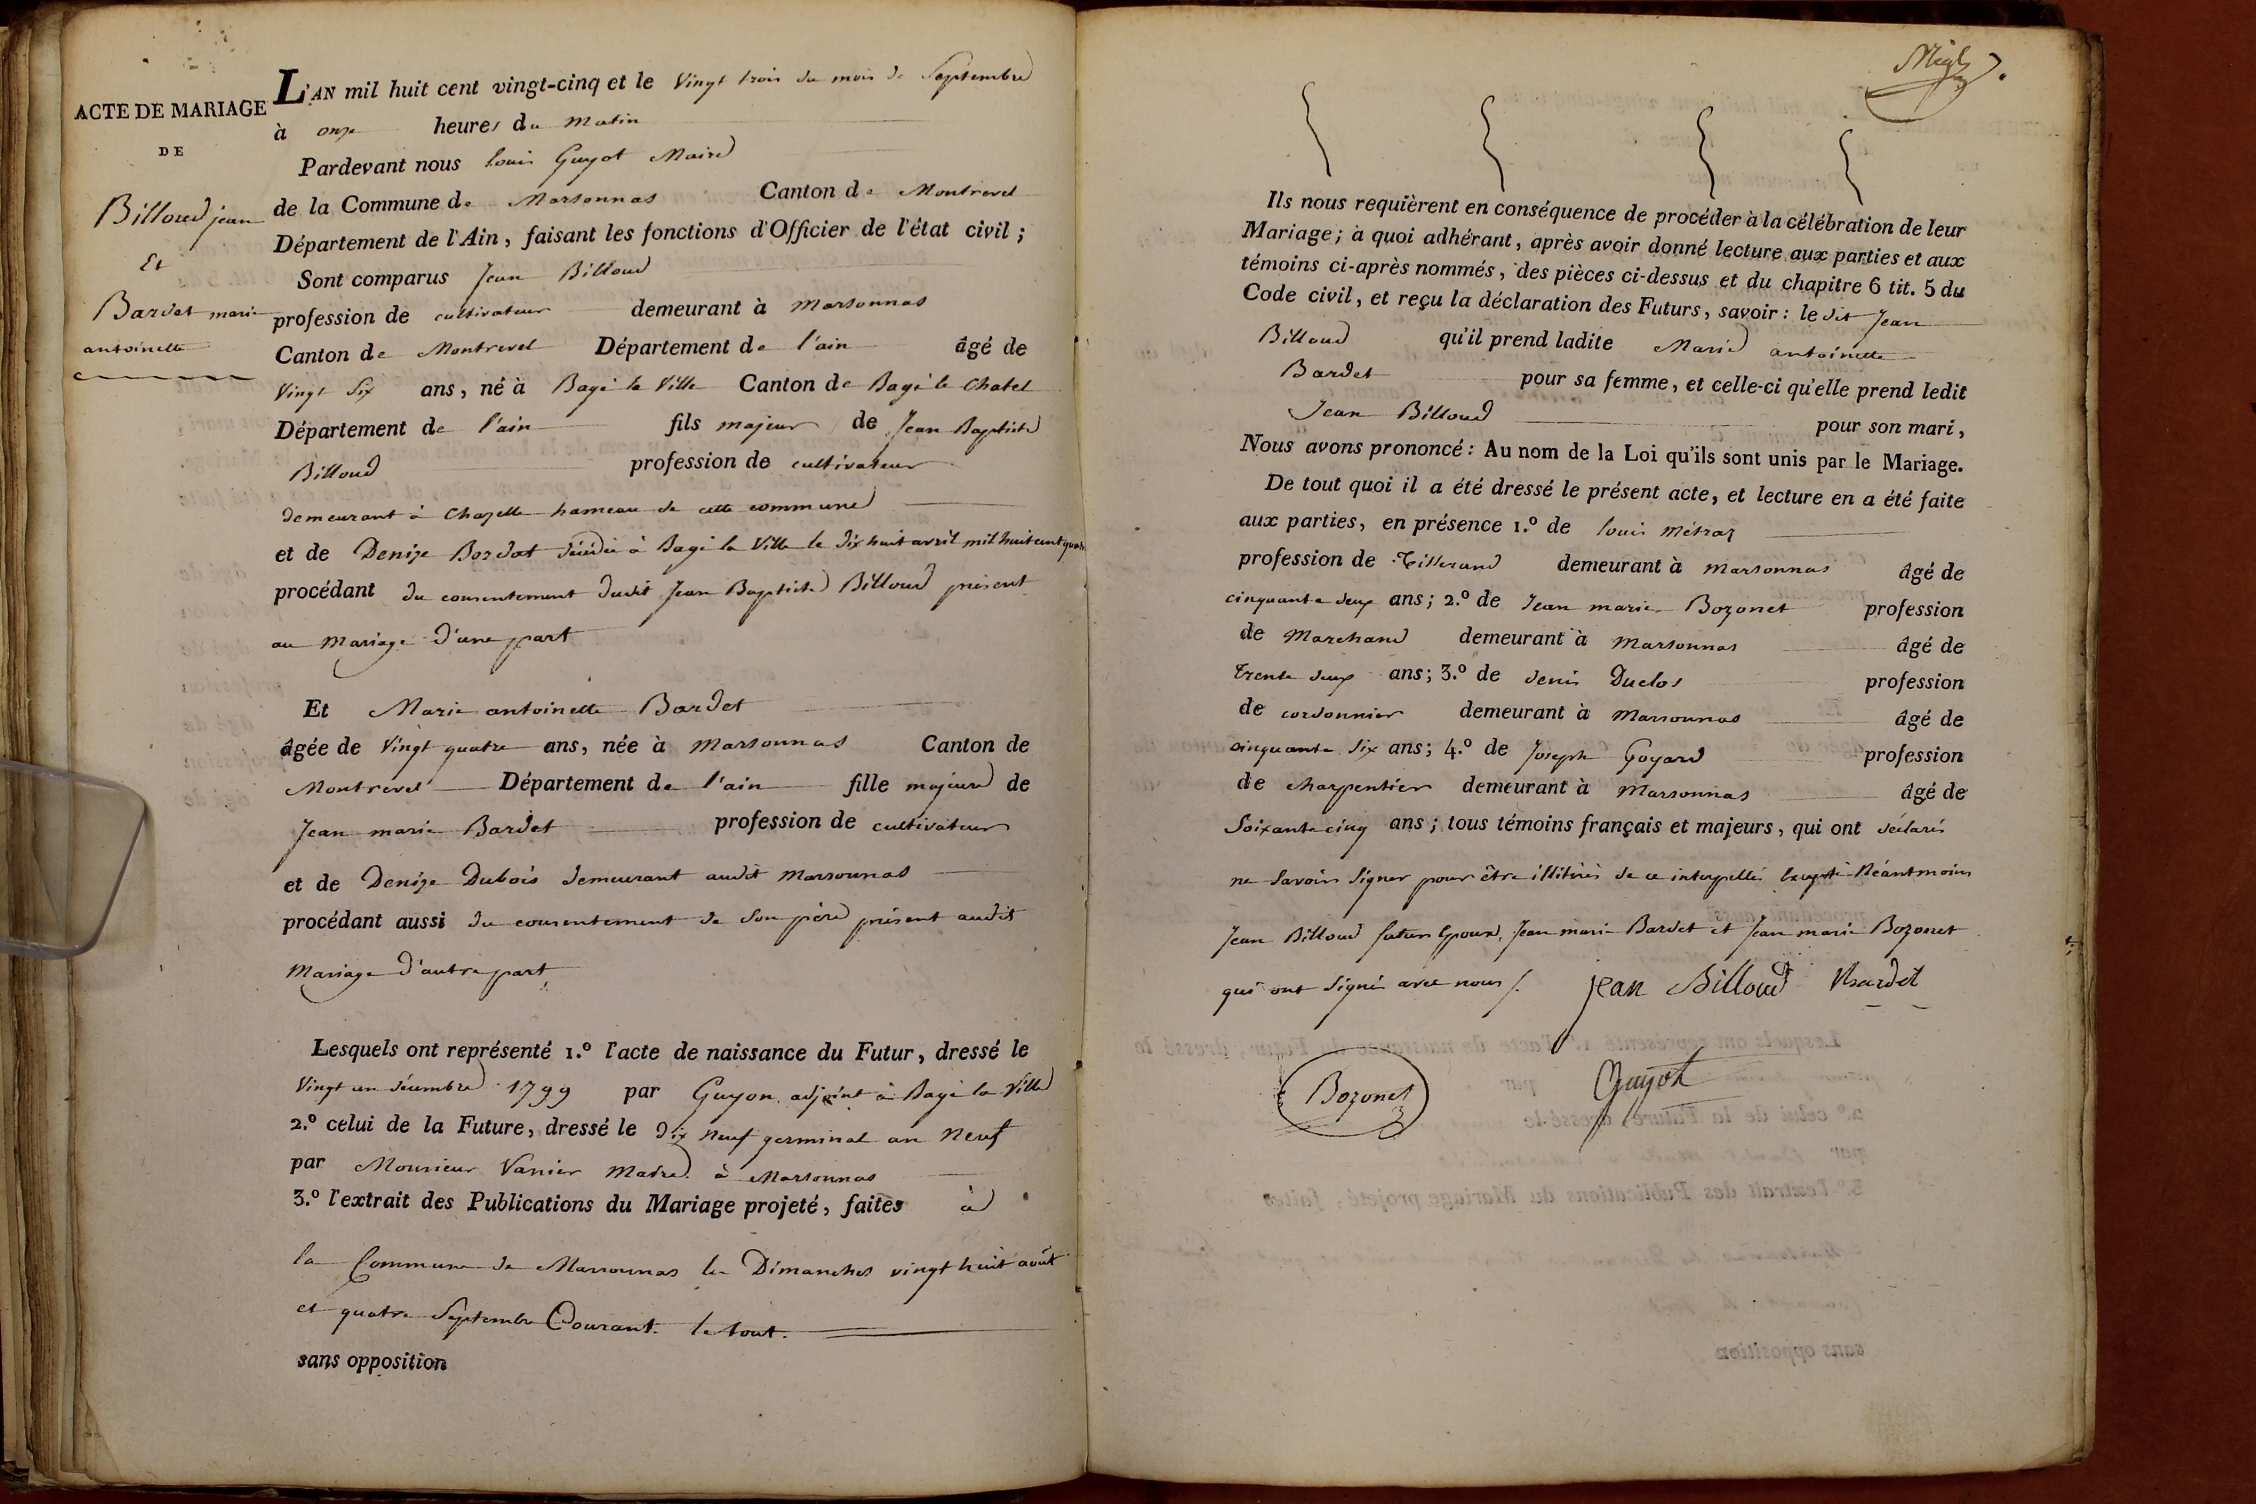 ACTE DE MARIAGE
DE
Billoud jean
Et
Bardet marie
antoinette
L'AN mil huit cent vingt-cinq et le Vingt trois du mois de Septembre
à onze heures du Matin
Pardevant nous louis Guyot Maire
de la Commune de Marsonnas Canton de Montrevel
Département de l'Ain, faisant les fonctions d'Officier de l'état civil ;
Sont comparus Jean Billoud
profession de cultivateur demeurant à Marsonnas
Canton de Montrevel Département de l'ain âgé de
Vingt Six ans, né à Bagé la Ville Canton de Bagé le Chatel
Département de l'ain fils majeur de Jean Baptiste
Billoud profession de cultivateur
demeurant à Chazelle hameau de cette commune
et de Denize Bordat décédée à Bagé la Ville le dix huit avril mil huit cent
procédant du consentement dudit Jean Baptiste Billoud présent
au Mariage d'une part
Et Marie antoinette Bardet
âgée de Vingt quatre ans, née à Marsonnas Canton de
Montrevel Département de l'ain fille majeure de
Jean marie Bardet profession de cultivateur
et de Denize Dubois demeurant audit Marsonnas
procédant aussi du consentement de Son père présent audit
Mariage d'autre part
Lesquels ont représenté 1.º l'acte de naissance du Futur, dressé le
Vingt un décembre 1799 par Guyon adjoint à Bagé la Ville
2.º celui de la Future, dressé le dix neuf germinal an Neuf
par Monsieur Vanier Maire à Marsonnas
3.º l'extrait des Publications du Mariage projeté, faites à
la Commune de Marsonnas les Dimanches vingt huit août
et quatre Septembre Courant. le tout.
sans opposition
Ils nous requièrent en conséquence de procéder à la célébration de leur
Mariage ; à quoi adhérant, après avoir donné lecture aux parties et aux
témoins ci-après nommés, des pièces ci-dessus et du chapitre 6 tit. 5 du
Code civil, et reçu la déclaration des Futurs, savoir : le dit Jean
Billoud qu'il prend ladite Marie antoinette
Bardet pour sa femme, et celle-ci qu'elle prend ledit
Jean Billoud pour son mari,
Nous avons prononcé : Au nom de la Loi qu'ils sont unis par le Mariage.
De tout quoi il a été dressé le présent acte, et lecture en a été faite
aux parties, en présence 1.º de louis Métraz
profession de Tisserand demeurant à Marsonnas âgé de
cinquante deux ans ; 2.º de Jean marie Bozonet profession
de Marchand demeurant à Marsonnas âgé de
trente deux ans ; 3.º de denis Duclos profession
de cordonnier demeurant à Marsonnas âgé de
cinquante Six ans ; 4.º de Joseph Goyard profession
de charpentier demeurant à Marsonnas âgé de
Soixante cinq ans ; tous témoins français et majeurs, qui ont déclaré
ne Savoir Signer pour être illitérés de ce interpellés Excepté Néantmoins
Jean Billoud futur Epoux, Jean marie Bardet et Jean marie Bozonet
qui ont Signé avec nous
jean Billoud Bardet
Bozonet
Guyot